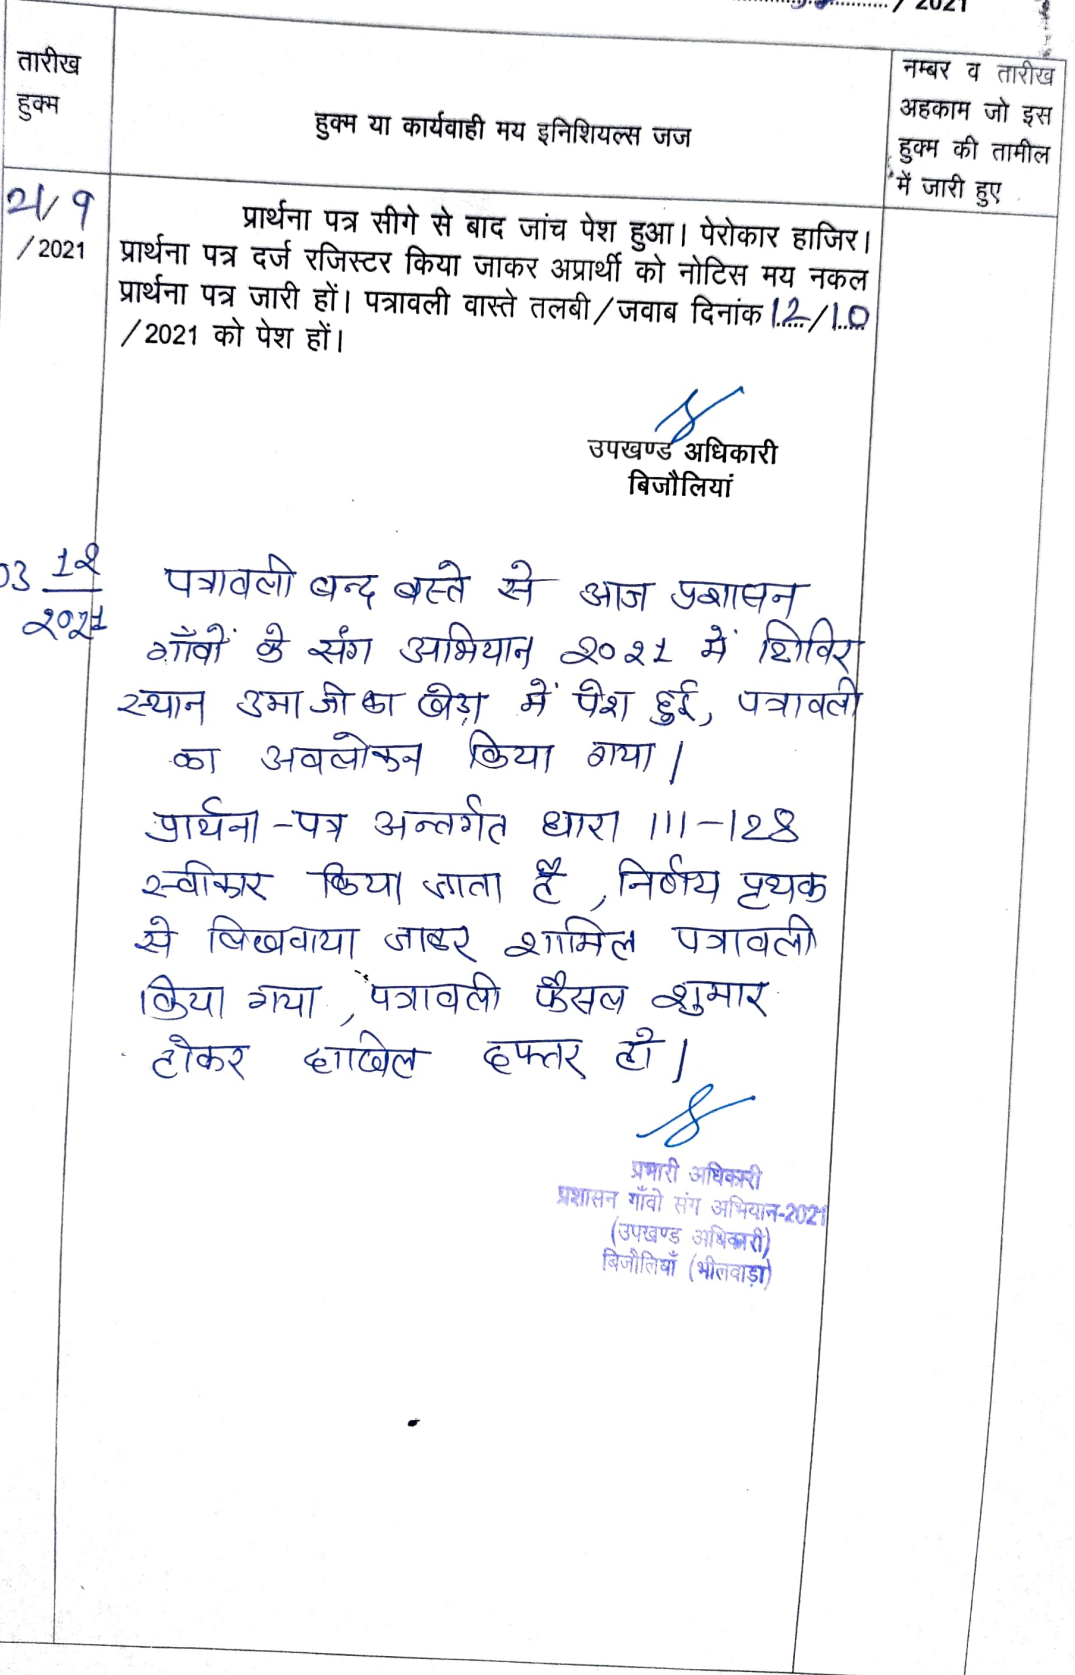 / 2021
तारीख
हुक्म
हुक्म या कार्यवाही मय इनिशियल्स जज
नम्बर व तारीख
अहकाम जो इस
हुक्म की तामील
में जारी हुए
21/9
/2021
प्रार्थना पत्र सीगे से बाद जांच पेश हुआ। पेरोकार हाजिर।
प्रार्थना पत्र दर्ज रजिस्टर किया जाकर अप्रार्थी को नोटिस मय नकल
प्रार्थना पत्र जारी हों। पत्रावली वास्ते तलबी/जवाब दिनांक 12/10
/2021 को पेश हों।
उपखण्ड अधिकारी
बिजौलियां
03 12
2021
पत्रावली बन्द बस्ते से आज प्रशासन
गाँवों के संग अभियान 2021 में शिविर
स्थान उमाजी का खेड़ा में पेश हुई, पत्रावली
का अवलोकन किया गया।
प्रार्थना-पत्र अन्तर्गत धारा 111-128
स्वीकार किया जाता है, निर्णय पृथक
से लिखवाया जाकर शामिल पत्रावली
किया गया, पत्रावली फैसल शुमार
होकर दाखिल दफ्तर हो।
प्रभारी अधिकारी
प्रशासन गाँवो संग अभियान-2021
(उपखण्ड अधिकारी)
बिजौलियाँ (भीलवाड़ा)